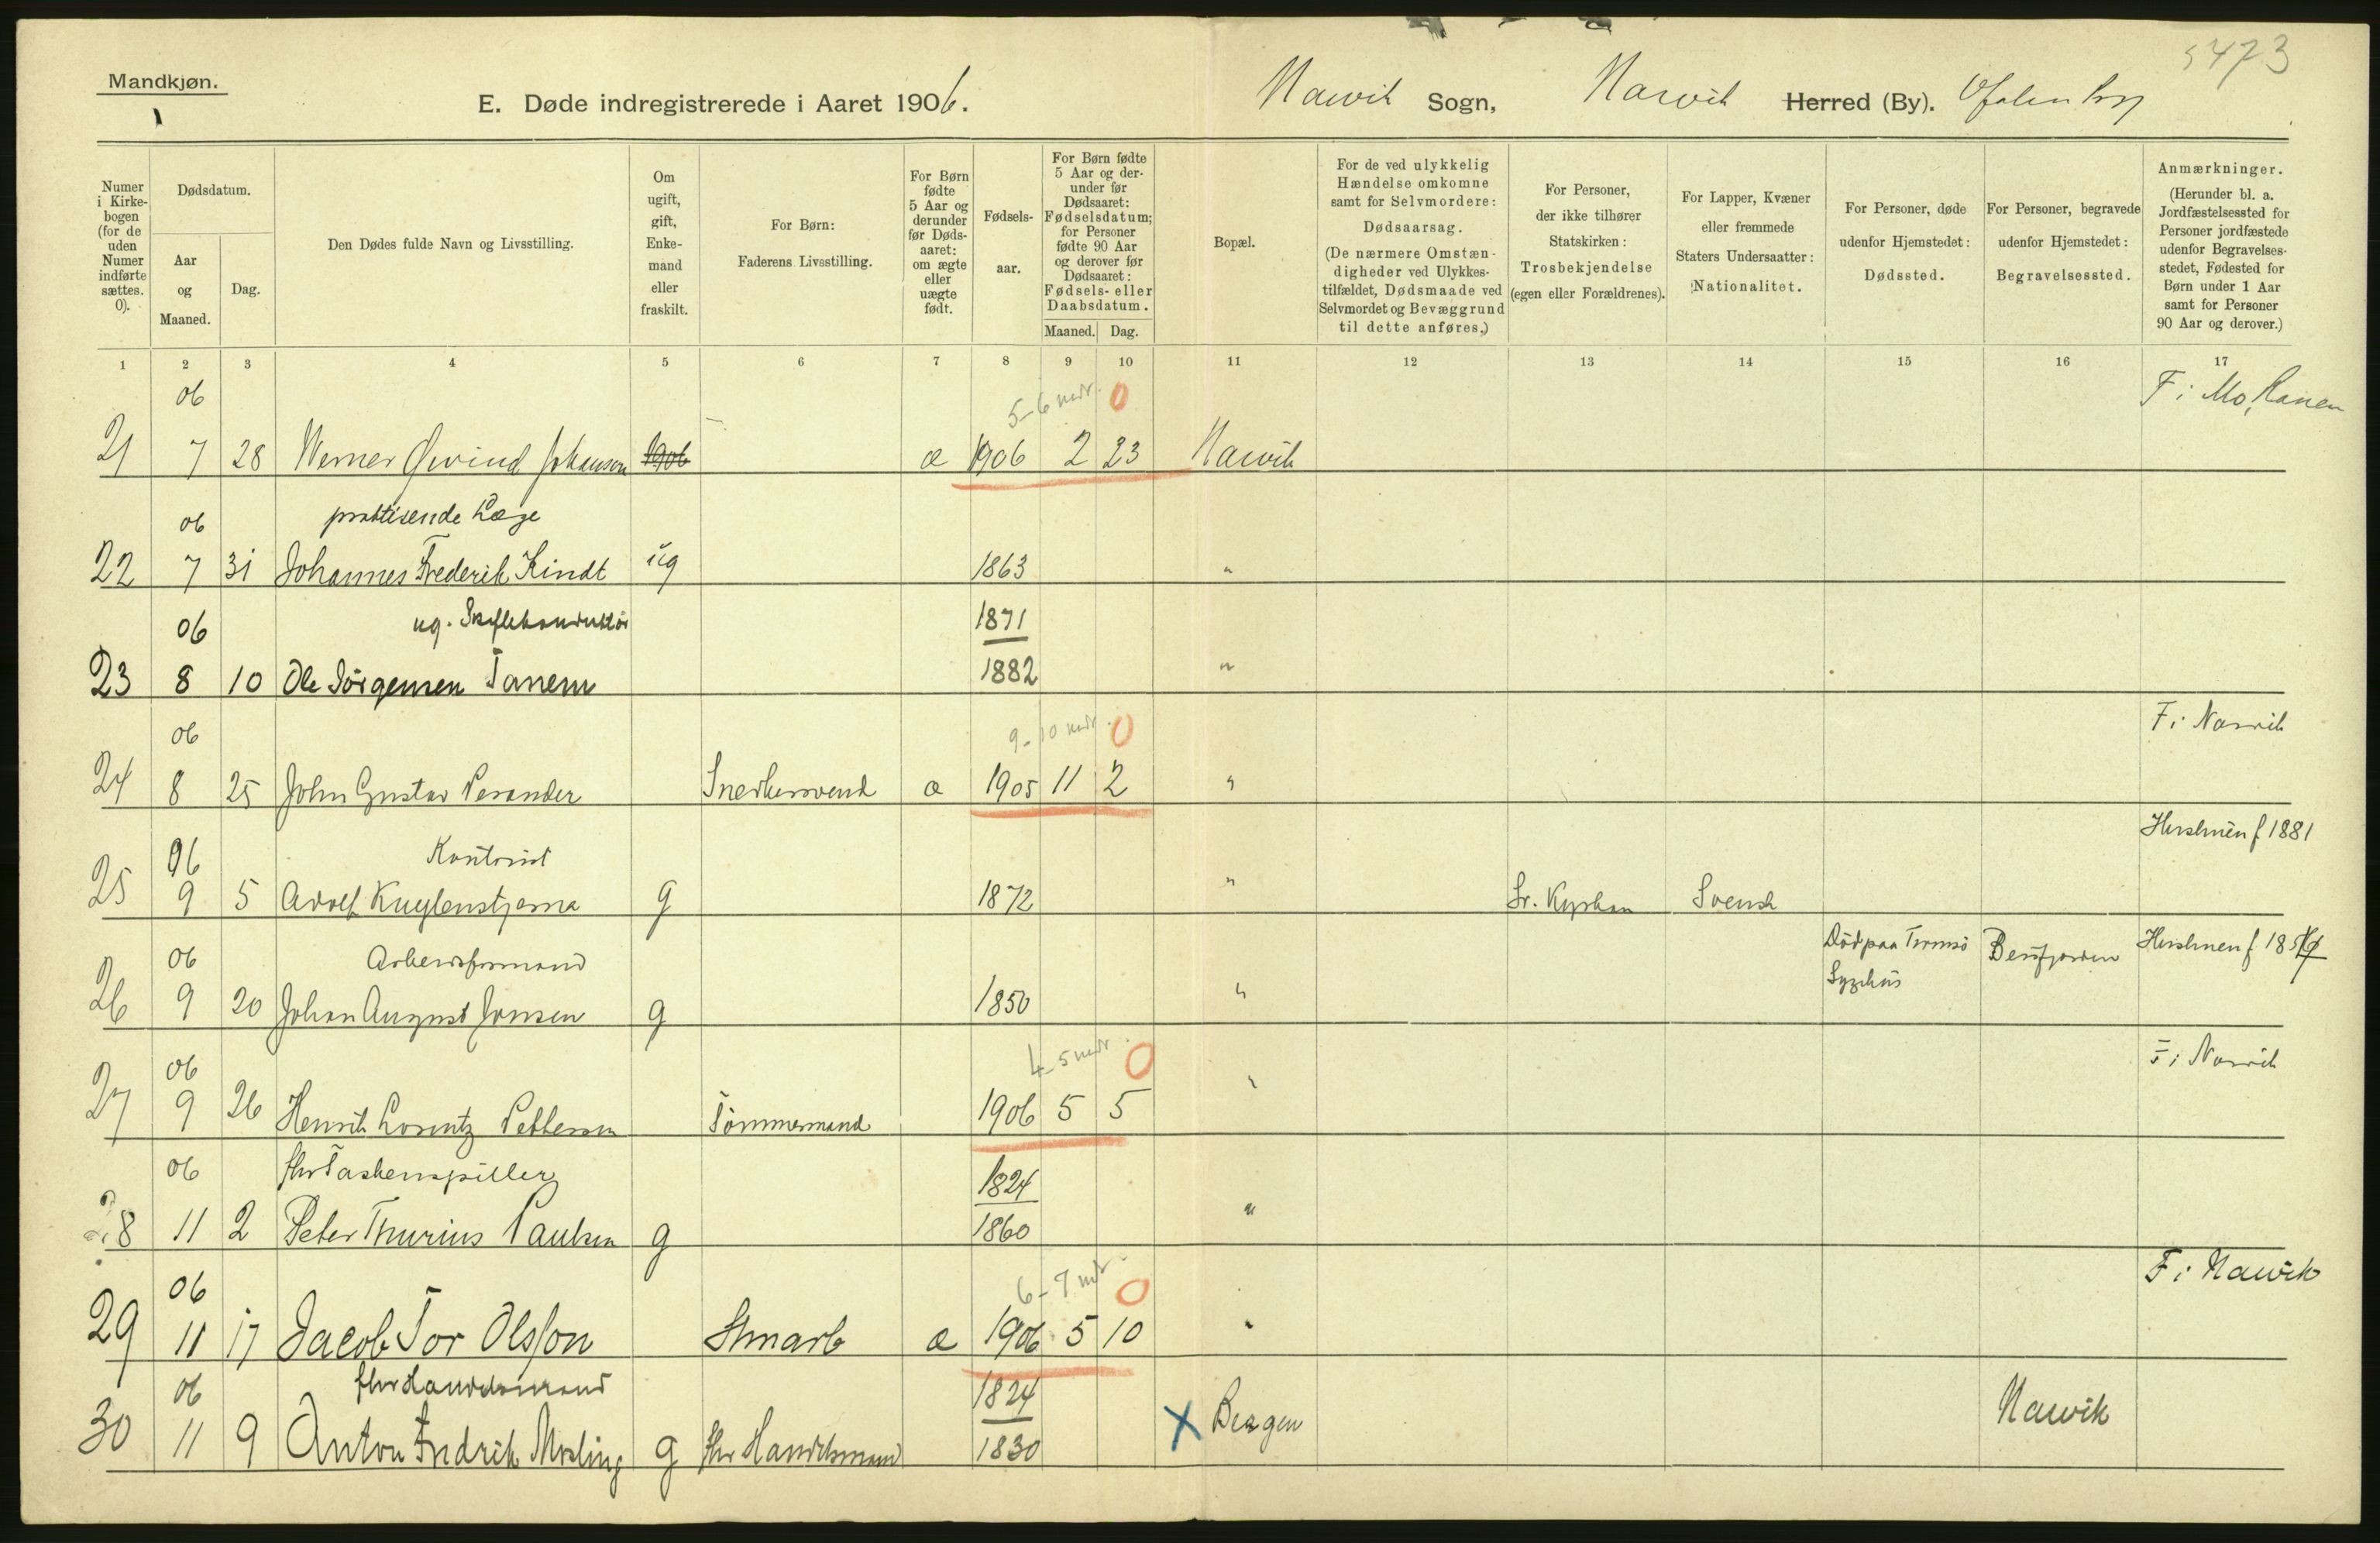 5473
Mandkjøn.
E. Døde indregistrerede i Aaret 1906. Narvik Sogn, Narvik Herred (By).
Numer i Kirke- bogen (for de uden Numer indførte sættes. 0).
Dødsdatum.
Aar og Maaned.
Dag.
Den Dødes fulde Navn og Livsstilling.
Om ugift, gift, Enke- mand eller fraskilt.
For Børn: Faderens Livsstilling.
For Børn fødte 5 Aar og derunder før Døds- aaret: om ægte eller uægte født.
Fødsels- aar.
For Børn fødte 5 Aar og der- under før Dødsaaret: Fødselsdatum; for Personer fødte 90 Aar og derover før Dødsaaret: Fødsels- eller Daabsdatum.
Maaned. Dag.
Bopæl.
For de ved ulykkelig Hændelse omkomne samt for Selvmordere: Dødsaarsag. (De nærmere Omstæn- digheder ved Ulykkes- tilfældet, Dødsmaade ved Selvmordet og Bevæggrund til dette anføres.)
For Personer, der ikke tilhører Statskirken: Trosbekjendelse (egen eller Forældrenes).
For Lapper, Kvæner eller fremmede Staters Undersaatter: Nationalitet.
For Personer, døde udenfor Hjemstedet: Dødssted.
For Personer, begravede udenfor Hjemstedet: Begravelsessted.
Anmærkninger. (Herunder bl. a. Jordfæstelsessted for Personer jordfæstede udenfor Begravelses- stedet, Fødested for Børn under 1 Aar samt for Personer 90 Aar og derover.)
1 2 3 4 5 6 7 8 9 10 11 12 13 14 15 16 17
06 5-6 mdr. 0 F: Mo, Ranen
21 7 28 Werner Øivind Johansen 1906 æ 1906 2 23 Narvik
06 praktisende Læge
22 7 31 Johannes Frederik Kindt ug 1863 "
06 ug. 1871
23 8 10 Ole Jørgensen Tanem 1882 "
06 9-10 mdr. 0 F: Narvik
24 8 25 John Gustav Perander Snedkersvend æ 1905 11 2 "
06 Kontorist f 1881
25 9 5 Adolf Kuylenstjerna g 1872 " Svensk
06 Arbeidsformand Død paa Tromsø Sygehus f
26 9 20 Johan August Jonsen g 1850 "
06 4-5 mdr. 0 F: Narvik
27 9 26 Henrik Lorentz Pettersen Tömmermand 1906 5 5 "
06 fhv Taskenspiller 1824
28 11 2 Peter Thurius Paulsen g 1860 "
06 6-7 mdr. 0 F: Narvik
29 11 17 Jacob Tor Olsson æ 1906 5 10 "
06 fhv Handelsmand 1824
30 11 9 Anton Fredrik g fhv Handelsmand 1830 X Bergen Narvik